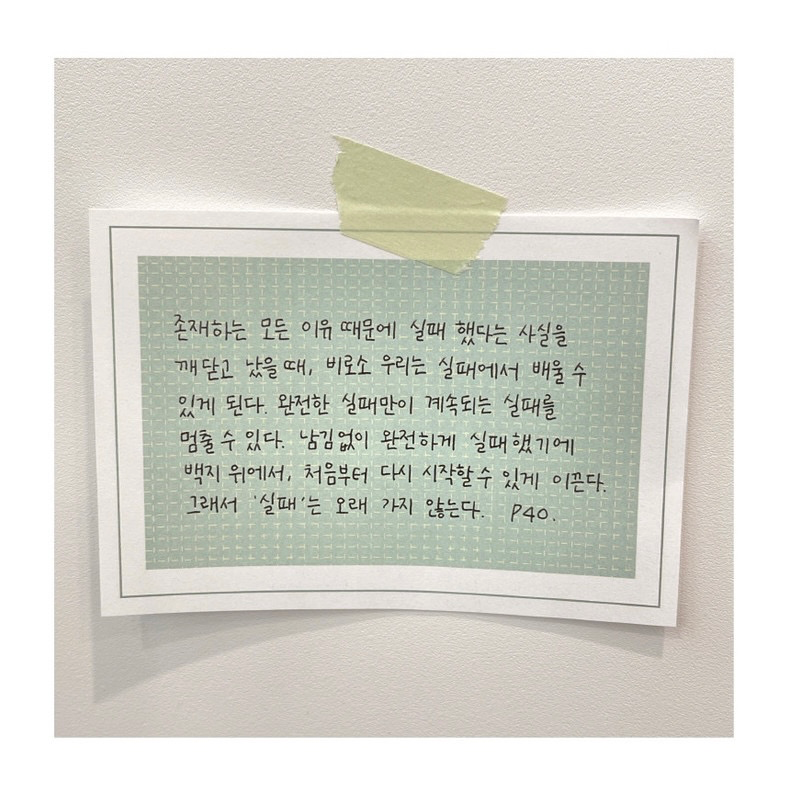 존재하는 모든 이유 때문에 실패 했다는 사실을
깨닫고 났을 때, 비로소 우리는 실패에서 배울 수
있게 된다. 완전한 실패만이 계속되는 실패를
멈출 수 있다. 남김없이 완전하게 실패했기에
백지 위에서, 처음부터 다시 시작할 수 있게 이끈다.
그래서 '실패'는 오래 가지 않는다. P40.